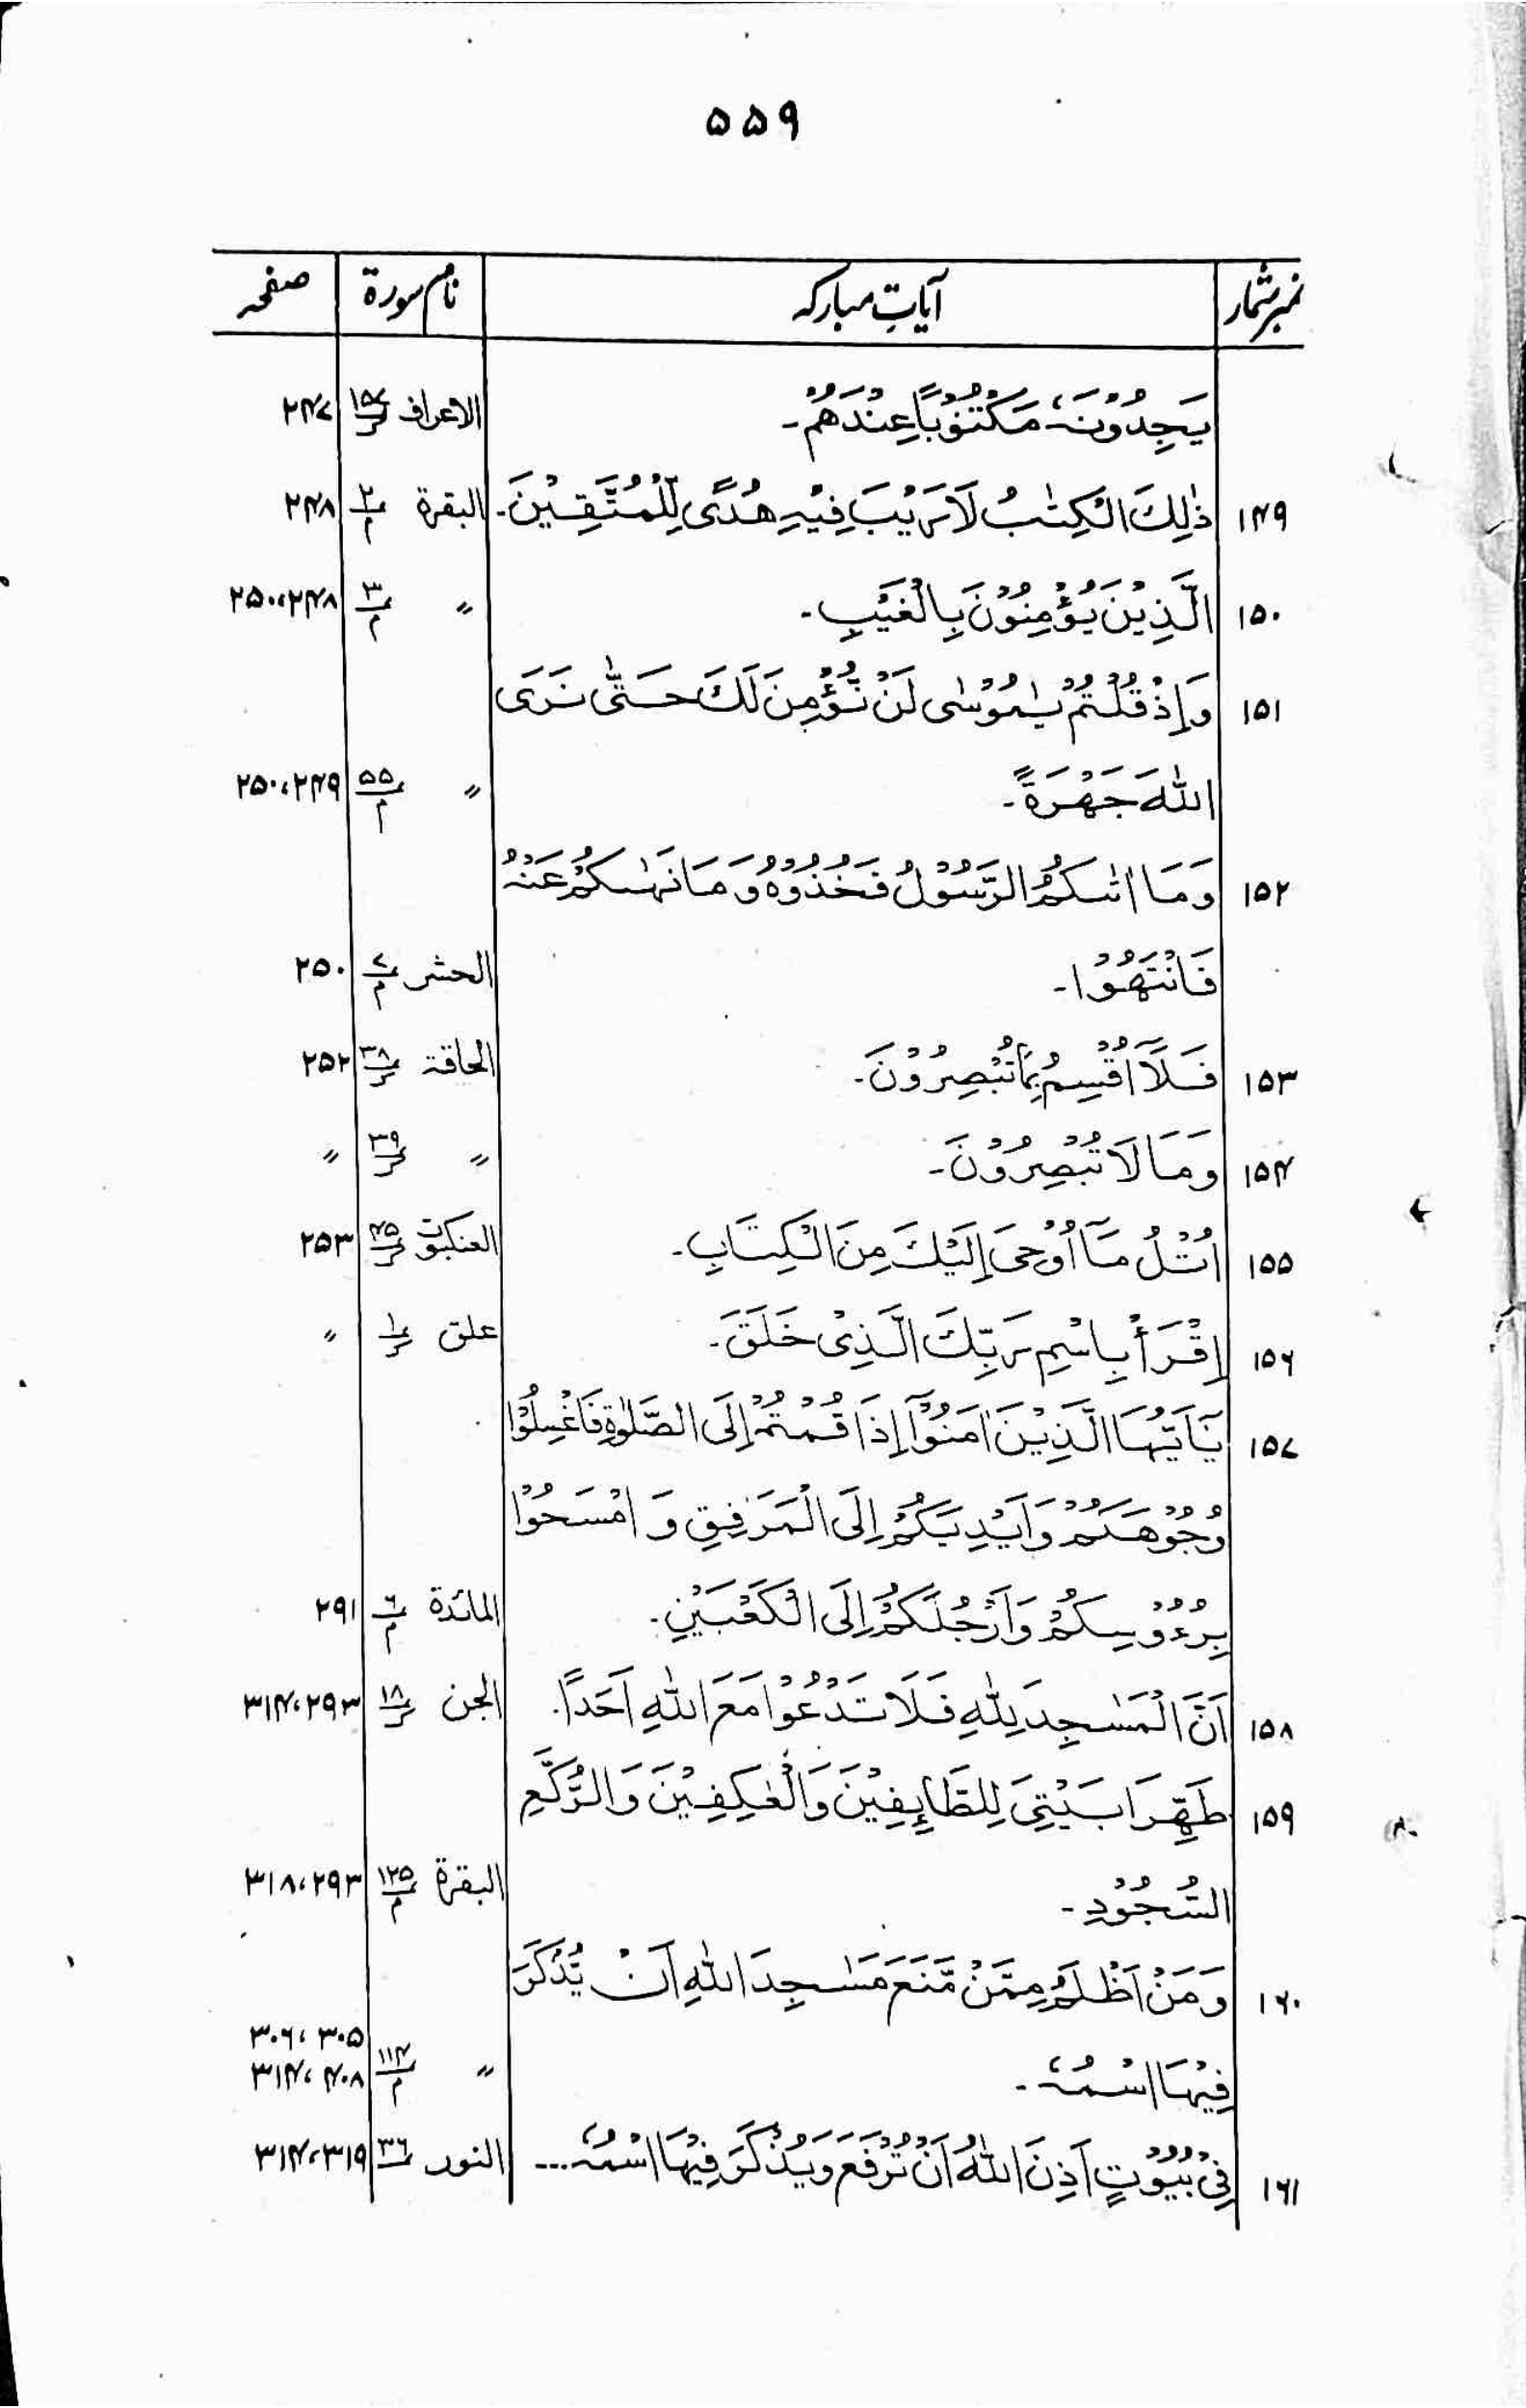 ۵۵۹
نمبر شمار آیاتِ مبارکہ نام سورۃ صفحہ
یَجِدُوْنَہٗ مَکْتُوْبًا عِنْدَھُمْ۔ الاعراف ۱۵۷/ر ۲۴۷
۱۴۹ ذٰلِکَ الْکِتٰبُ لَا رَیْبَ فِیْہِ ھُدًی لِّلْمُتَّقِیْنَ۔ البقرۃ ۲/م ۲۴۸
۱۵۰ الَّذِیْنَ یُؤْمِنُوْنَ بِالْغَیْبِ۔ 〃 ۳/م ۲۴۸،۲۵۰
۱۵۱ وَاِذْ قُلْتُمْ یٰمُوْسٰی لَنْ نُّؤْمِنَ لَکَ حَتّٰی نَرَی
اللہَ جَھْرَۃً۔ 〃 ۵۵/م ۲۴۹،۲۵۰
۱۵۲ وَمَا اٰتٰىکُمُ الرَّسُوْلُ فَخُذُوْہُ وَمَا نَھٰىکُمْ عَنْہُ
فَانْتَھُوْا۔ الحشر ۷/م ۲۵۰
۱۵۳ فَلَآ اُقْسِمُ بِمَا تُبْصِرُوْنَ۔ الحاقۃ ۳۸/ر ۲۵۲
۱۵۴ وَمَا لَا تُبْصِرُوْنَ۔ 〃 ۳۹/ر 〃
۱۵۵ اُتْلُ مَآ اُوْحِیَ اِلَیْکَ مِنَ الْکِتَابِ۔ العنکبوت ۴۵/ر ۲۵۳
۱۵۶ اِقْرَأْ بِاسْمِ رَبِّکَ الَّذِیْ خَلَقَ۔ علق ۱/ر 〃
۱۵۷ یٰٓاَیُّھَا الَّذِیْنَ اٰمَنُوْٓا اِذَا قُمْتُمْ اِلَی الصَّلٰوۃِ فَاغْسِلُوْا
وُجُوْھَکُمْ وَاَیْدِیَکُمْ اِلَی الْمَرَفِقِ وَامْسَحُوْا
بِرُءُوْسِکُمْ وَاَرْجُلَکُمْ اِلَی الْکَعْبَیْنِ۔ المائدۃ ۶/م ۲۹۱
۱۵۸ اَنَّ الْمَسٰجِدَ لِلہِ فَلَا تَدْعُوْا مَعَ اللہِ اَحَدًا۔ الجن ۱۸/ر ۲۹۳،۳۱۴
۱۵۹ طَھِّرَا بَیْتِیَ لِلطَّائِفِیْنَ وَالْعٰکِفِیْنَ وَالرُّکَّعِ
السُّجُوْدِ۔ البقرۃ ۱۲۵/م ۲۹۳،۳۱۸
۱۶۰ وَمَنْ اَظْلَمُ مِمَّنْ مَّنَعَ مَسٰجِدَ اللہِ اَنْ یُّذْکَرَ
فِیْھَا اسْمُہٗ۔ 〃 ۱۱۴/م ۳۰۵، ۳۰۶
۴۰۸، ۳۱۴
۱۶۱ فِیْ بُیُوْتٍ اَذِنَ اللہُ اَنْ تُرْفَعَ وَیُذْکَرَ فِیْھَا اسْمُہٗ... النور ۳۶ ۳۱۹،۳۱۴